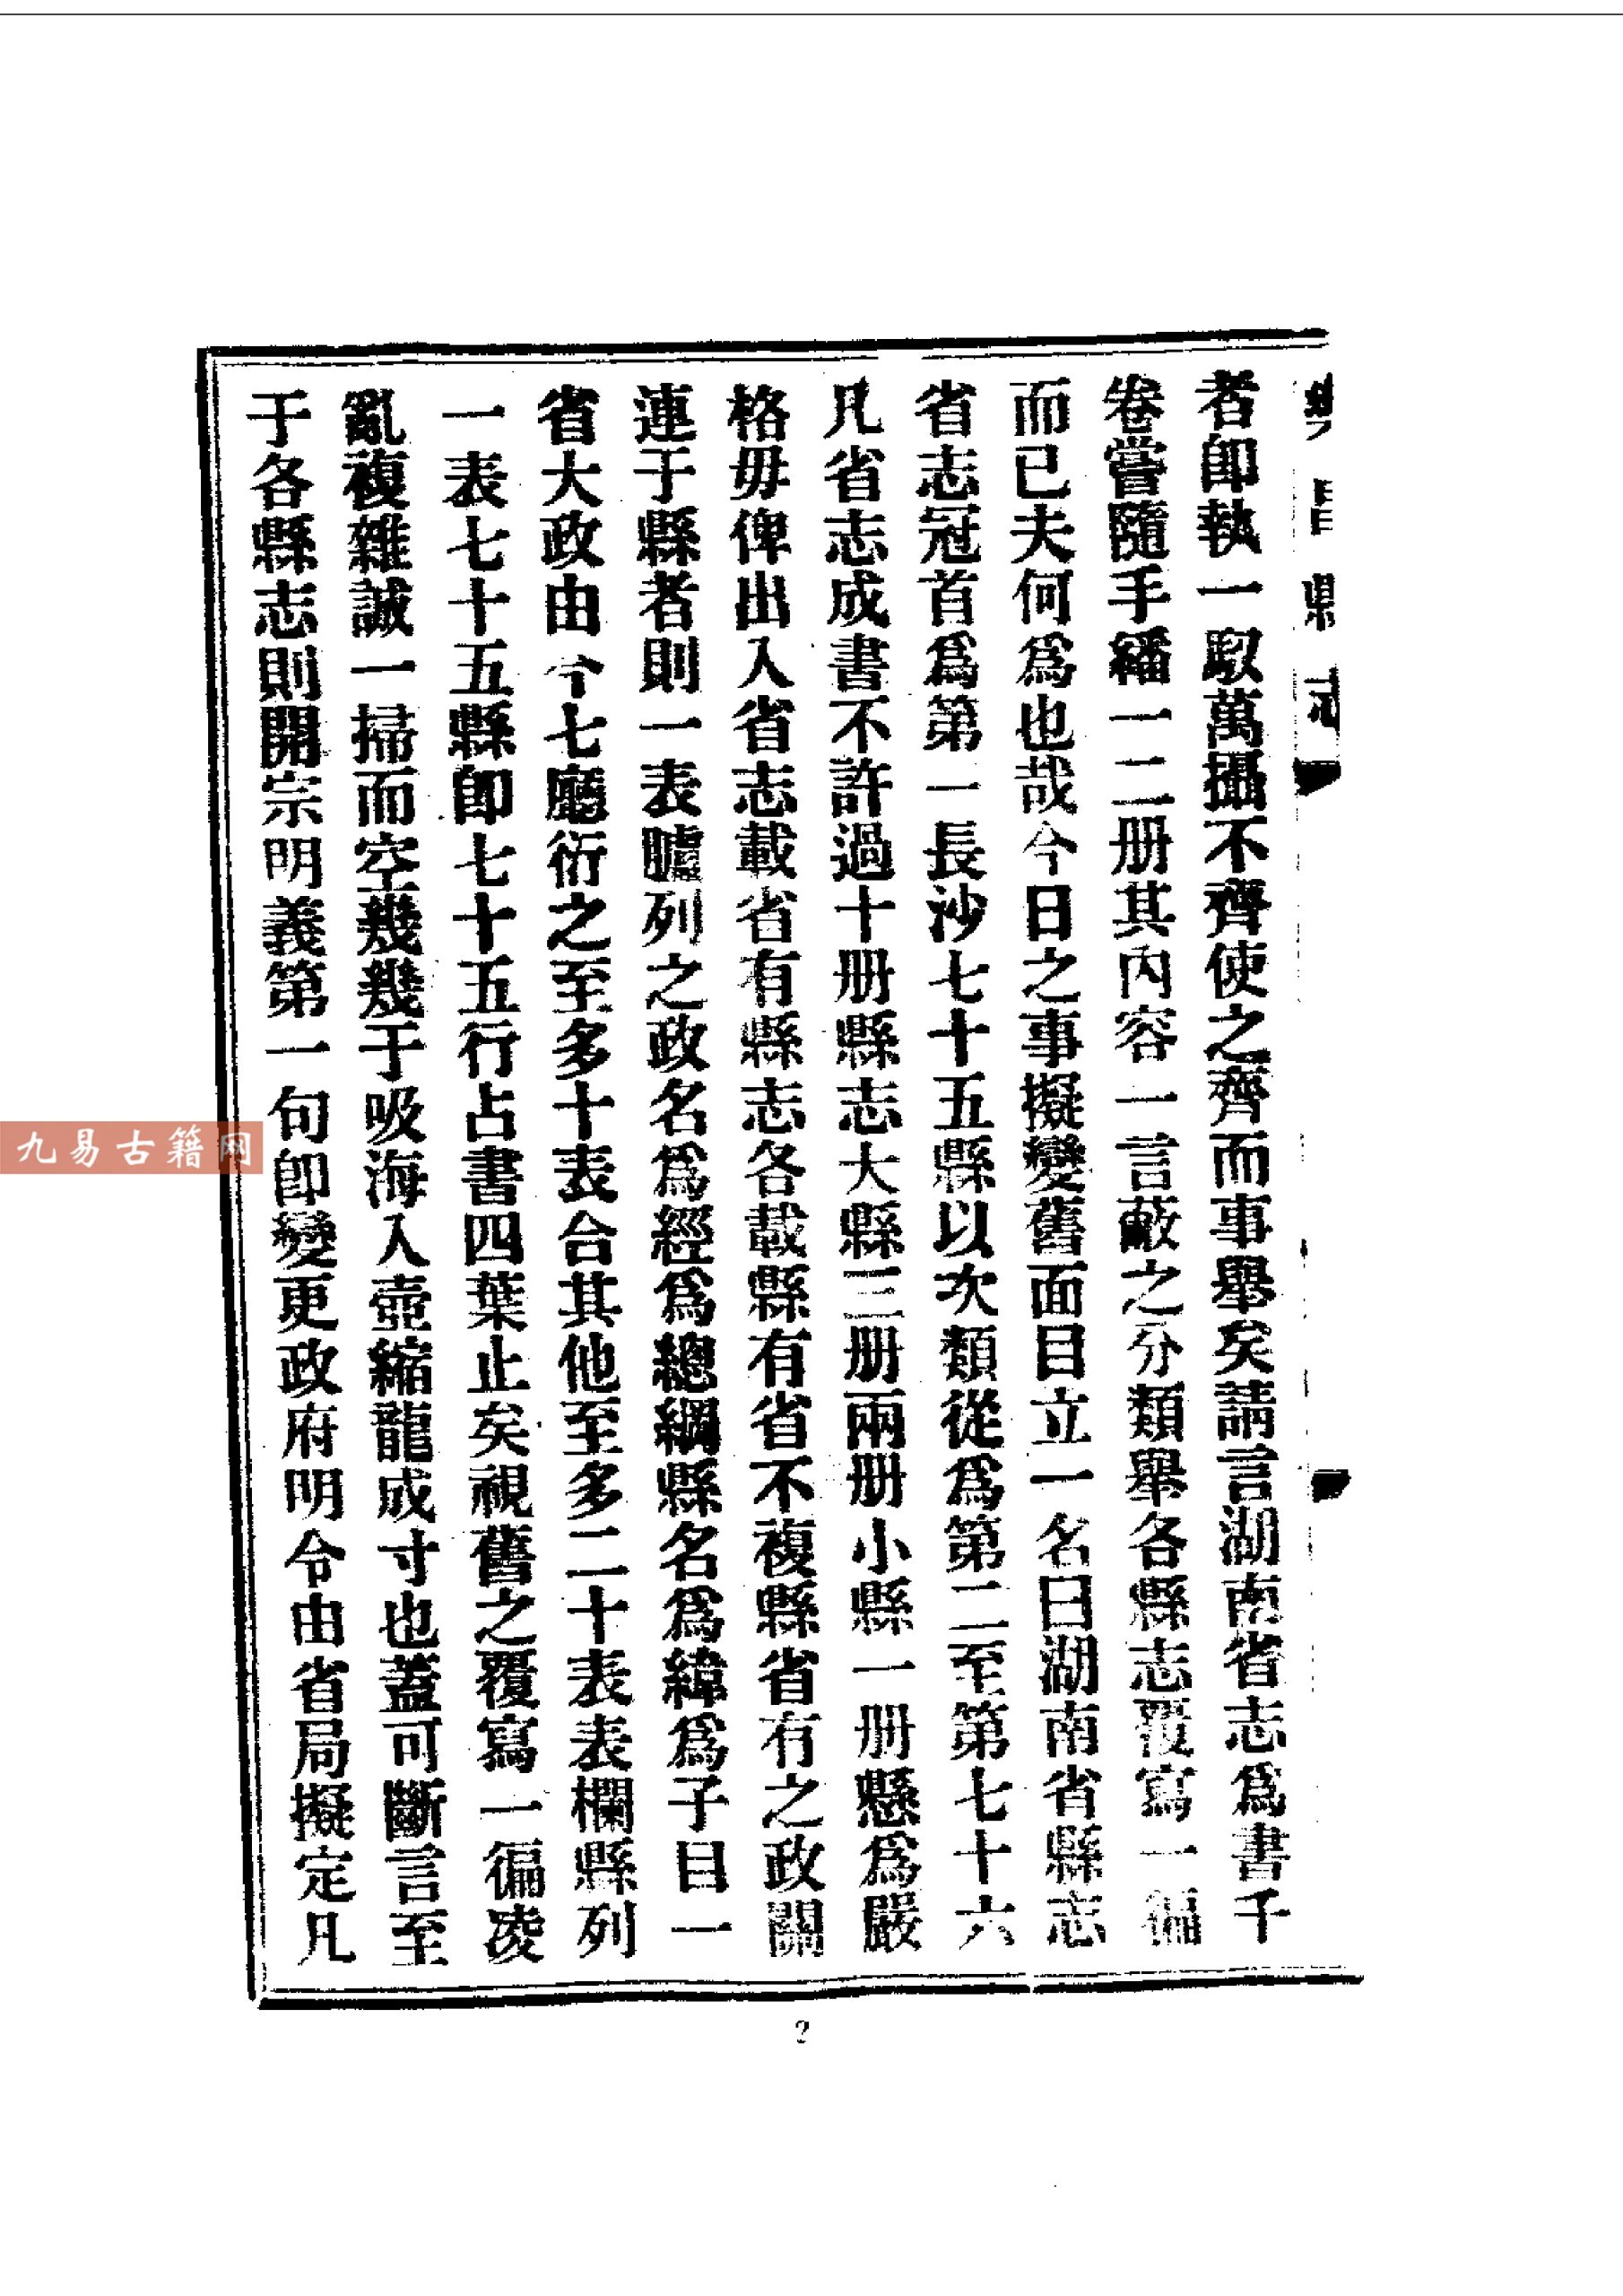 縣志
者卽執一馭萬攝不齊使之齊而事舉矣請言湖南省志爲書千
卷嘗隨手繙一二册其内容一言蔽之分類舉各縣志覆寫一徧
而已夫何爲也哉今日之事擬變舊面目立一名曰湖南省縣志
省志冠首爲第一長沙七十五縣以次類從爲第二至第七十六
凡省志成書不許過十册縣志大縣三册兩册小縣一册懸爲嚴
格毋俾出入省志載省有縣志各載縣有省不複縣省有之政關
連于縣者則一表臚列之政名爲經爲總綱縣名爲緯爲子目一
省大政由今七廳衍之至多十表合其他至多二十表表欄縣列
一表七十五縣卽七十五行占書四葉止矣視舊之覆寫一徧凌
亂複雜誠一掃而空幾幾于吸海入壺縮龍成寸也蓋可斷言至
于各縣志則開宗明義第一句卽變更政府明令由省局擬定凡
2
九易古籍网